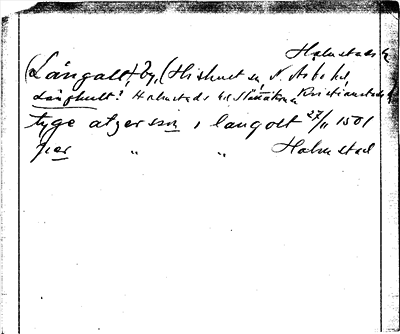 Halmstads
(Långalt), by, (Hishult sn, N. Åsbo hd,
Långhult? Halmstads hd Slättåkra Kristianstads
tyge atzersson i langolt 27/11 1501
per " " Halmstad